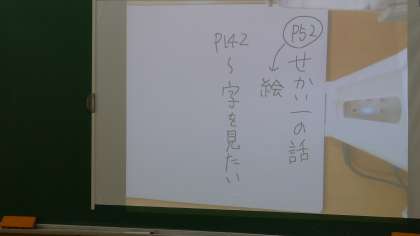 P52
せかい一の話
絵
P142
～字を見たい